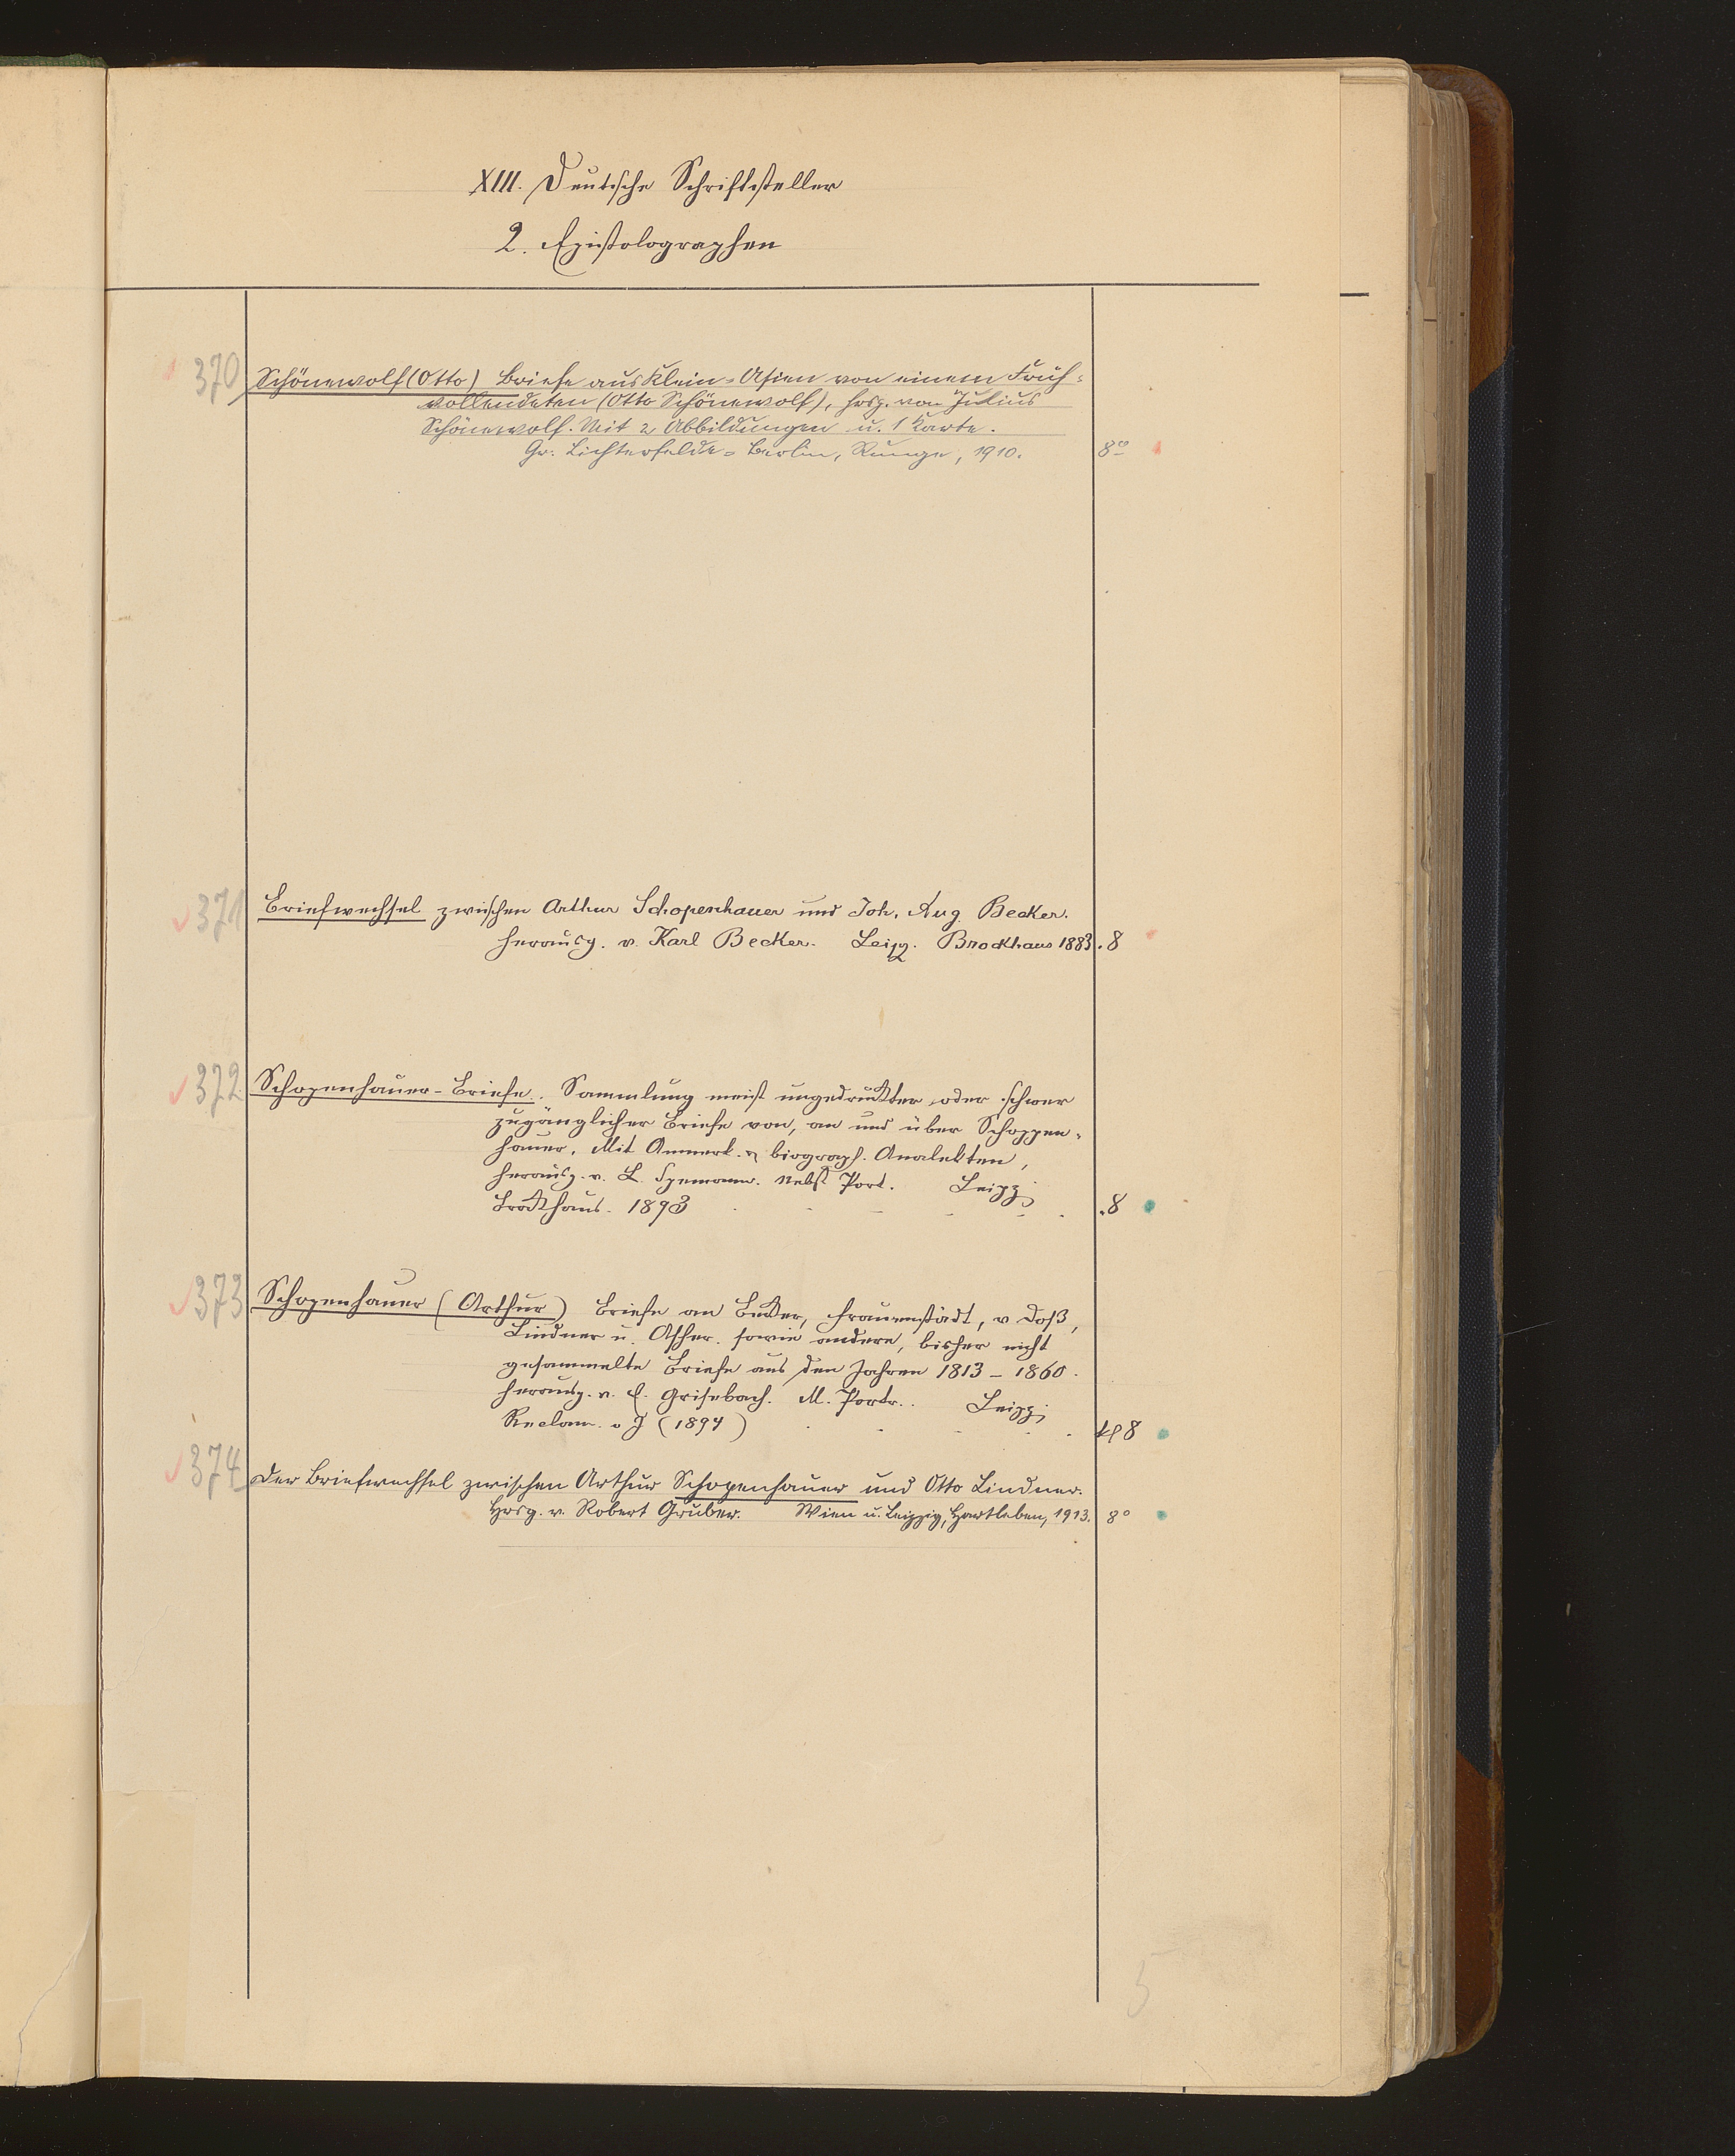 XIII. Deutsche Schriftsteller
2. Epistolographen
370 Schönewolf (Otto) Briefe aus Klein-Asien von einem Früh-
vollendeten (Otto Schönewolf), hrsg. von Julius
Schönewolf. Mit 2 Abbildungen u. 1 Karte.
Gr. Lichterfelde-Berlin, Runge, 1910. 8°
371 Briefwechsel zwischen Arthur Schopenhauer und Joh. Aug. Becker.
herausg. v. Karl Becker. Leipz. Brockhaus 1883. 8
372 Schopenhauer-Briefe. Sammlung meist ungedruckter oder schwer
zugänglicher Briefe von, an und über Schoppen-
hauer. Mit Anmerk. & biograph. Analekten,
herausg. v. L. Spemann. Nebst Port. Leipz
Brockhaus. 1893 . 8
373 Schopenhauer (Arthur) Briefe an Becker, Frauenstädt, v Doß,
Lindner u. Asher. sowie andere, bisher nicht
gesammelte Briefe aus den Jahren 1813 - 1860.
herausg. v. E. Grisebach. M. Portr.. Leipz
Reclam. o J (1894) kl 8
374 Der Briefwechsel zwischen Arthur Schopenhauer und Otto Lindner.
Hrsg. v. Robert Gruber. Wien u. Leipzig, Hartleben, 1913. 8°
5